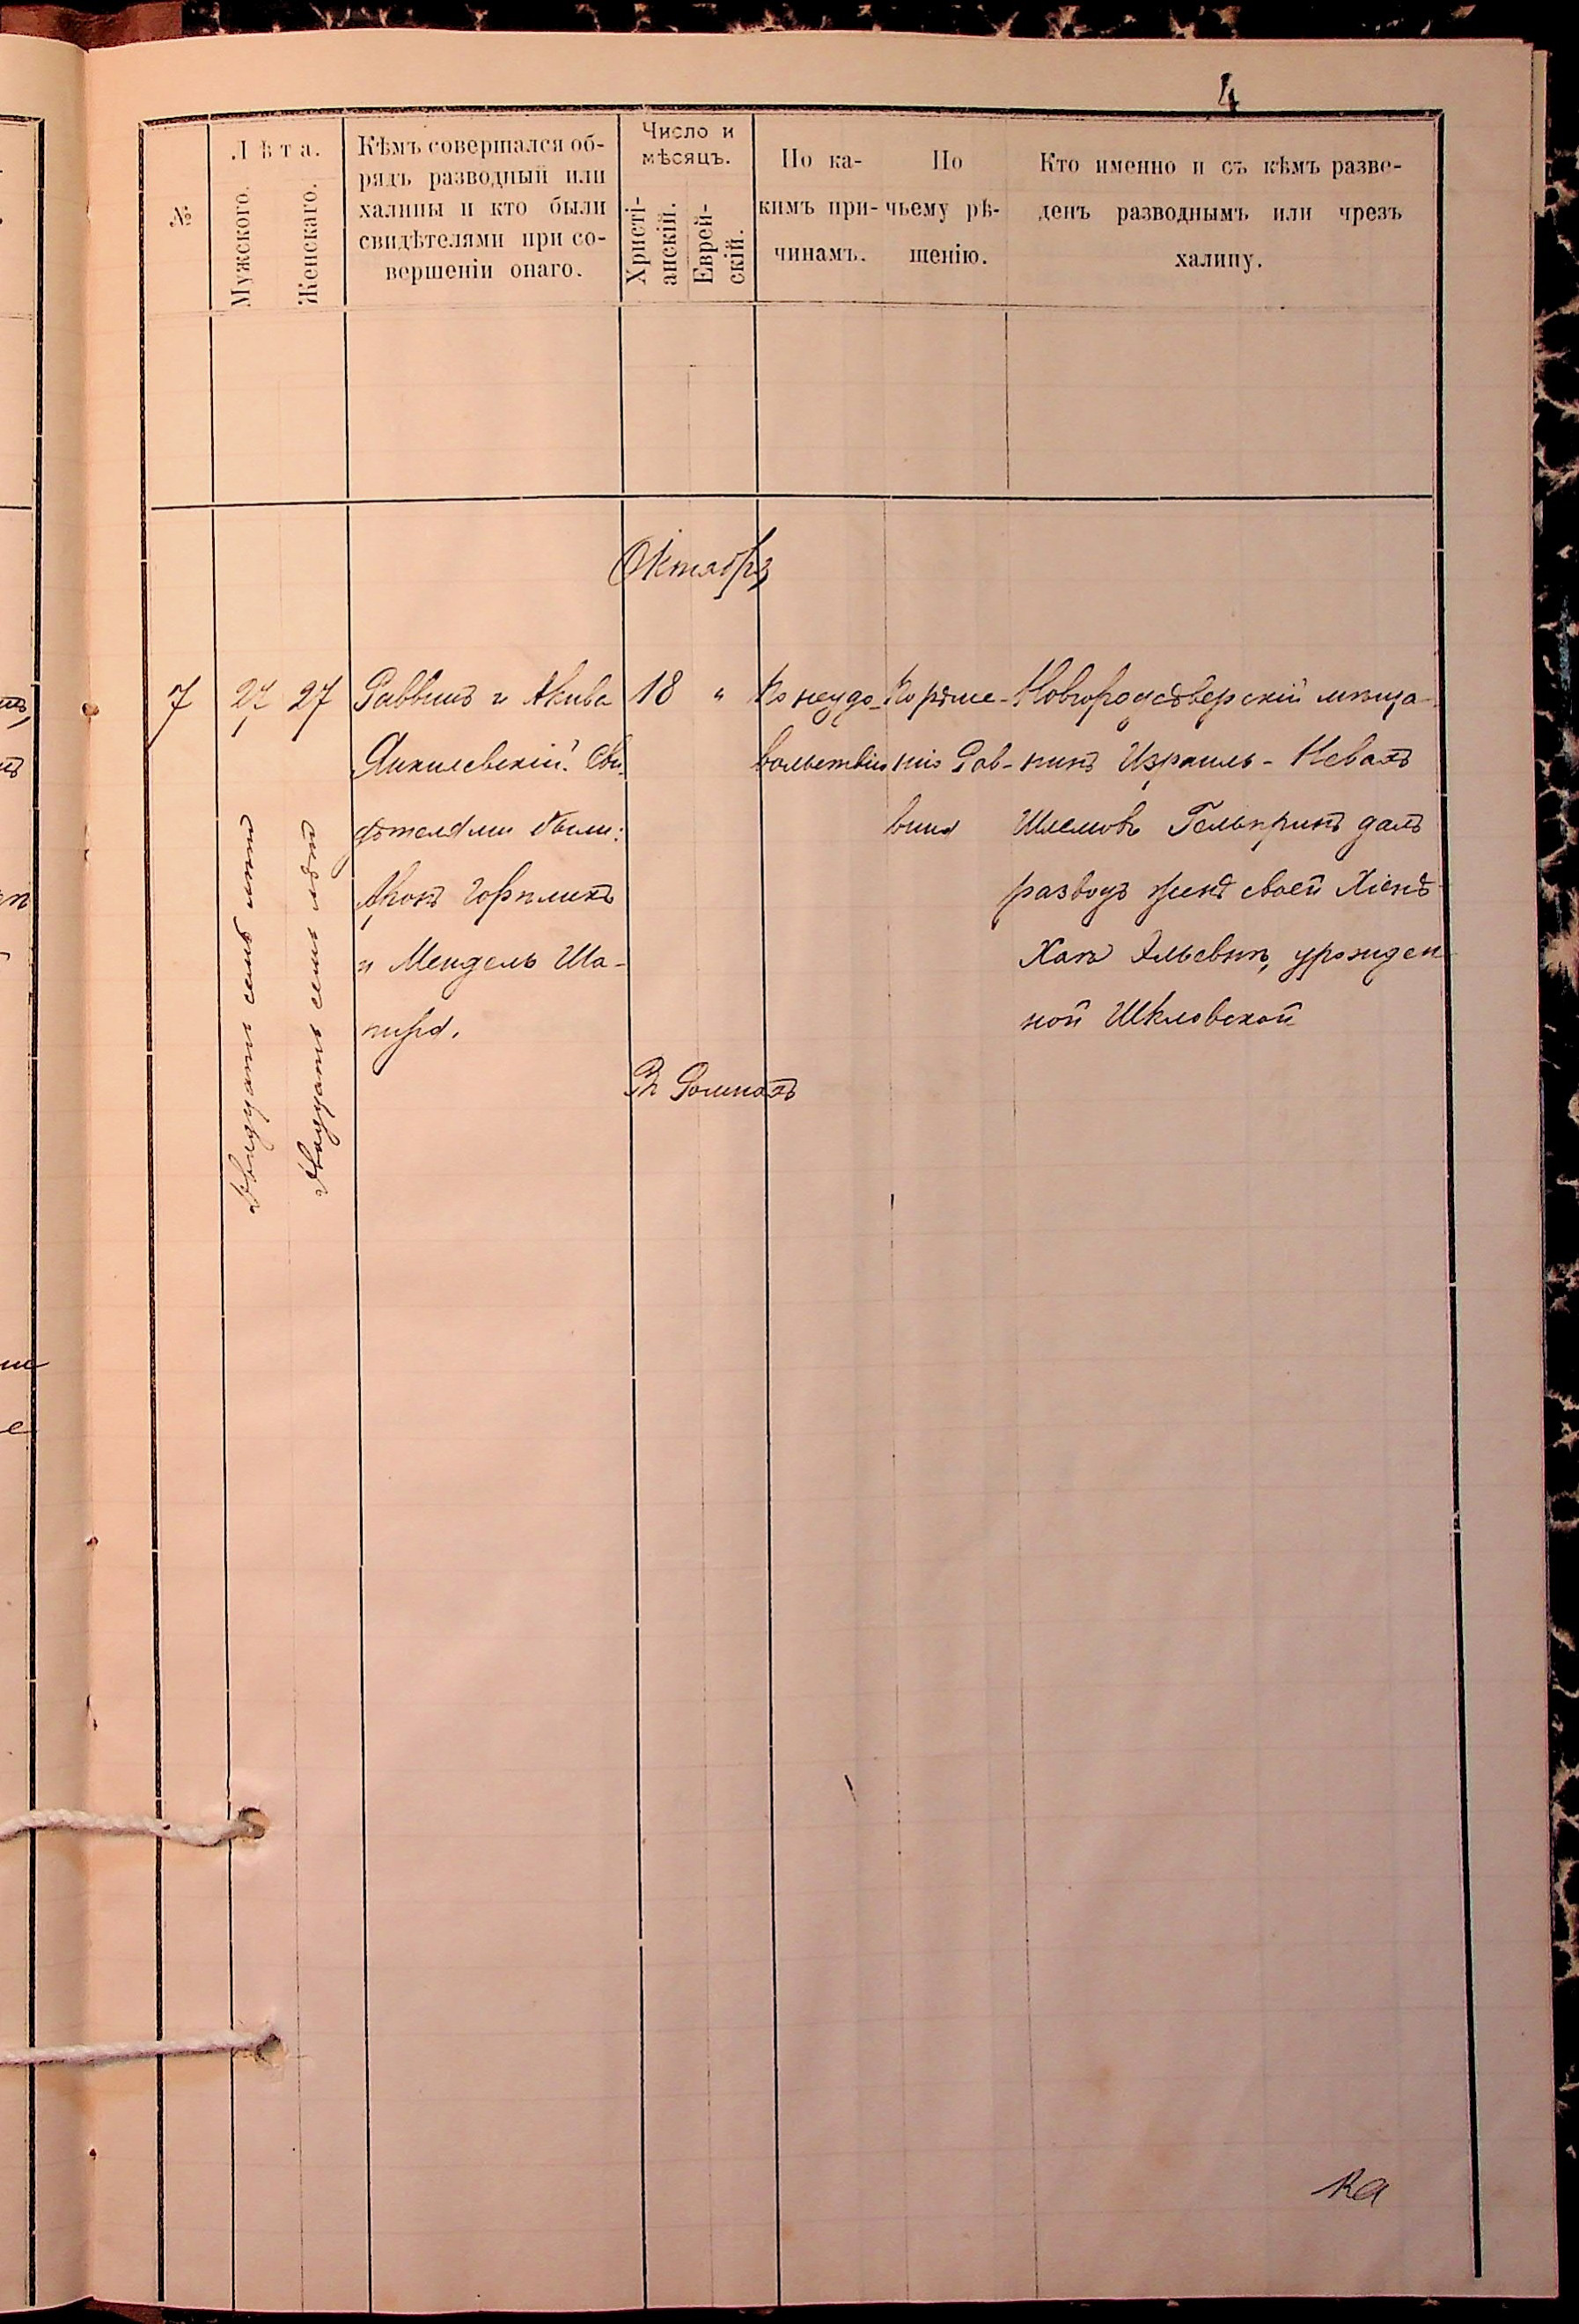 4
№
Лѣта.
Мужского.
Женскаго.
Кѣмъ совершался об-
рядъ разводный или
халицы и кто были
свидѣтелями при со-
вершеніи онаго.
Число и
мѣсяцъ.
Христі-
анскій.
Еврей-
скій.
По ка-
кимъ при-
чинамъ.
По
чьему рѣ-
шенію.
Кто именно и съ кѣмъ разве-
денъ разводнымъ или чрезъ
халицу.
Октябрь
7
27
Двадцать семь лѣтъ
27
Двадцать семь лѣтъ
Раввинъ и Акива
Янкилевскій. Сви-
дѣтелями были:
Аронъ Горѣликъ
и Мендель Ша-
пиро.
18 "
По неудо-
вольствію
По рѣше-
нію Рав-
вина
Новгородсѣверскій мѣща-
нинъ Израиль-
Шлемовъ Гельпринъ далъ
разводъ женѣ своей Хіенѣ-
Ханѣ Эльевнѣ, урожден
ной Шкловской
Въ Ромнахъ
ка